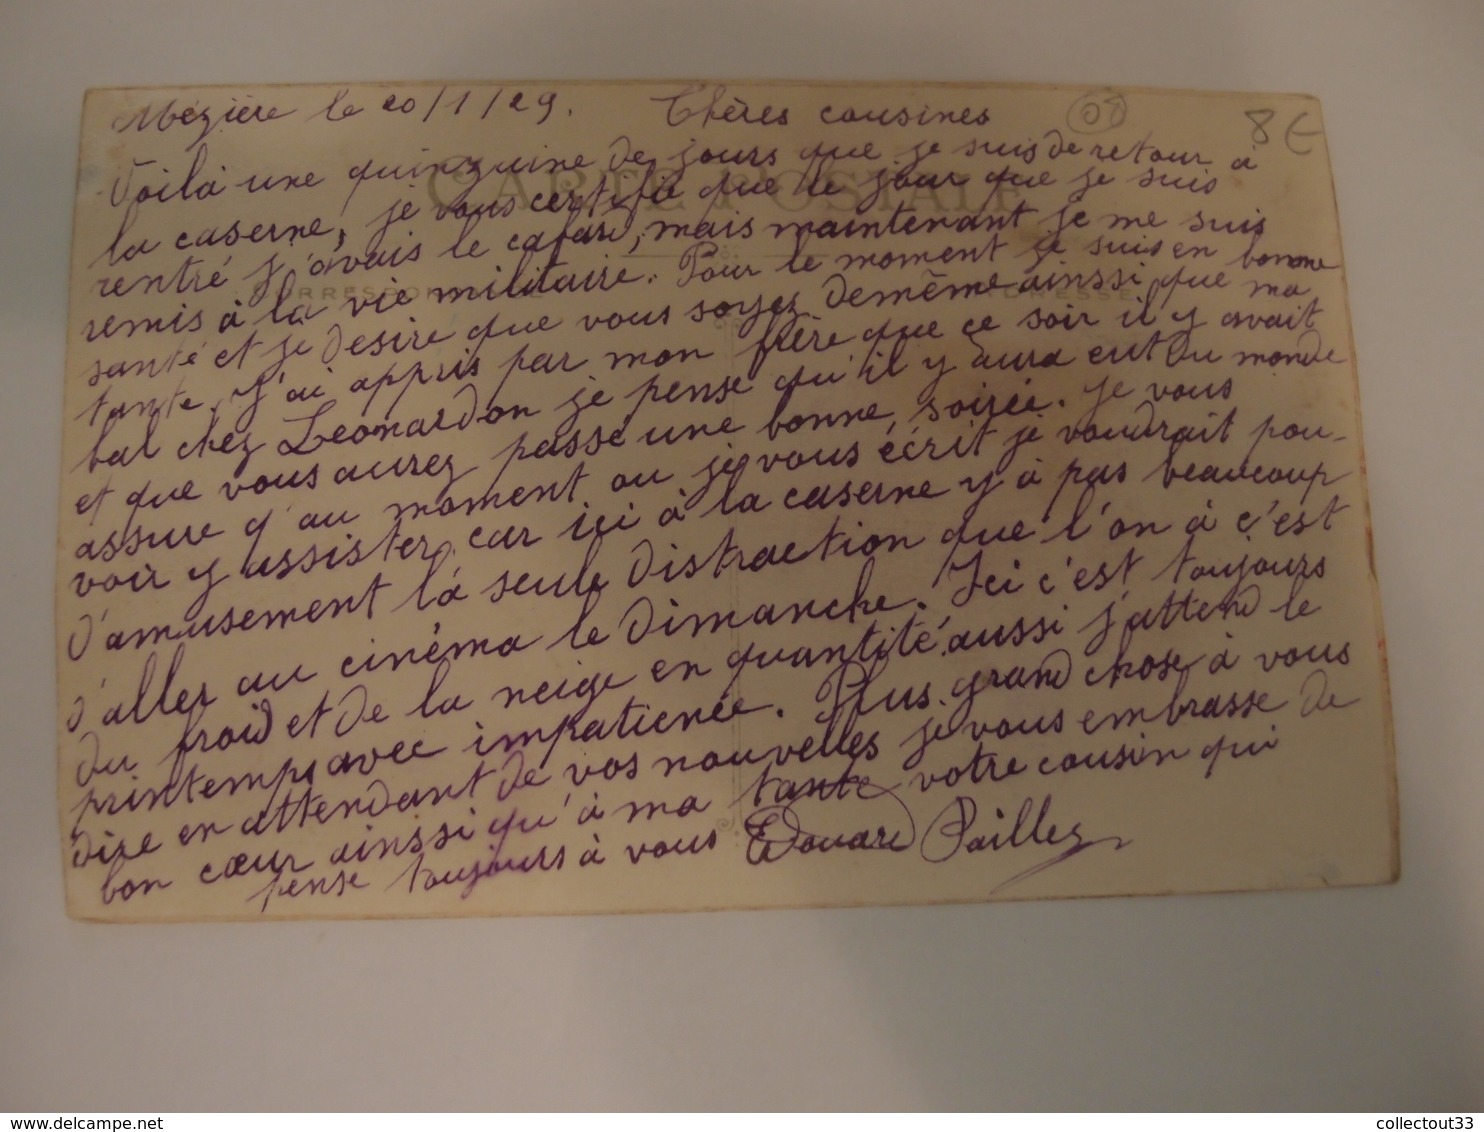 Mézière le 20/1/29. Chères cousines
08
8 €
CARTE POSTALE
CORRESPONDANCE
ADRESSE
Voilà une quinzaine de jours que je suis de retour à
la caserne, je vous certifie que le jour que je suis
rentré j'avais le cafard, mais maintenant je me suis
remis à la vie militaire. Pour le moment je suis en bonne
santé et je desire que vous soyez demême ainssi que ma
tante. J'ai appris par mon frère que ce soir il y avait
bal chez Leonardon je pense qu'il y aura eut du monde
et que vous aurez passé une bonne soirée. Je vous
assure q'au moment ou je vous écrit je voudrait pou-
voir y assister car içi à la caserne y à pas beaucoup
d'amusement là seule distraction que l'on à c'est
d'aller au cinéma le dimanche. Ici c'est toujours
du froid et de la neige en quantité aussi j'attend le
printemps avec impatience. Plus grand chose à vous
dire en attendant de vos nouvelles je vous embrasse de
bon cœur ainssi qu'à ma tante votre cousin qui
pense toujours à vous Edouard Paillez
delcampe.net
collectout33